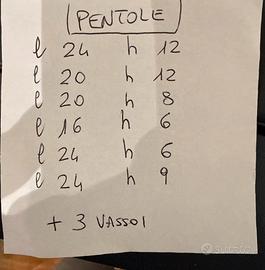 PENTOLE
l 24 h 12
l 20 h 12
l 20 h 8
l 16 h 6
l 24 h 6
l 24 h 9
+ 3 VASSOI
subito